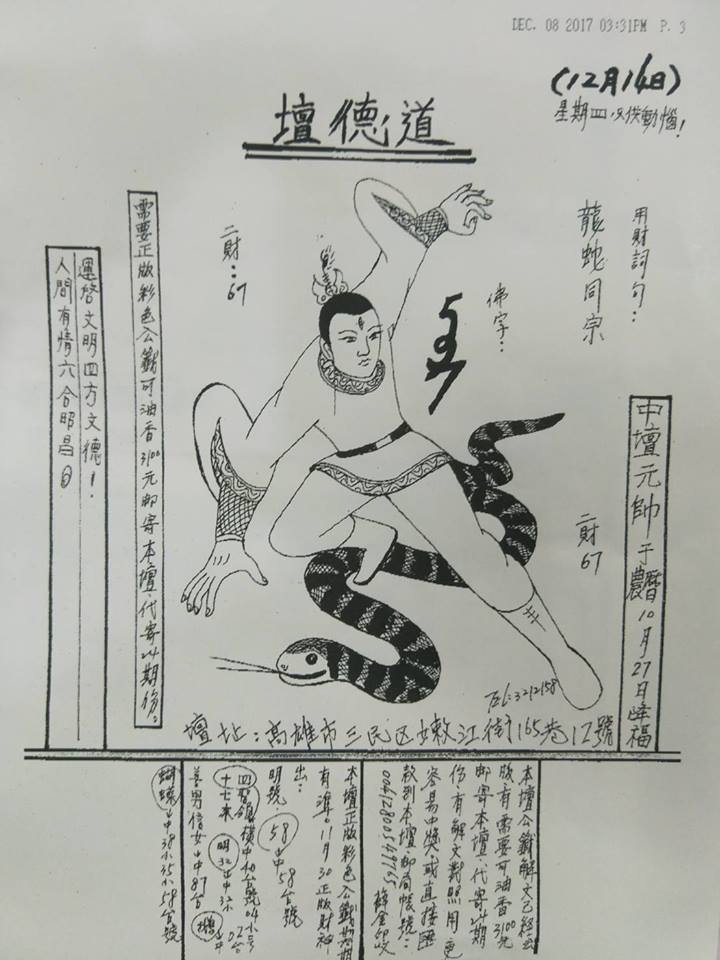 DEC. 08 2017 03:31PM P. 3
(12月14日)
星期四,只供動惱!
壇德道
用財詞句：
龍蛇同宗
佛字：
597
二財：67
需要正版彩色公籤可油香3100元邮寄本壇.代寄24期份。
運啓文明四方文德!
人間有情六合昭昌
中壇元帥于農曆10月27日降福
二財67
TEL:3212158
壇址：高雄市三民区嫩江街165巷12號
本壇公籤解文已経出
版有需要可油香3100元
邮寄本壇.代寄24期
份,有解文對照用,更
容易中獎,或直接匯
款到本壇.邮局帳號：
本壇正版彩色公籤期期
有準。11月30正版財神
出：
明號(58)中58台號
善男信女中87台
蝴蝶中38小35小58台號